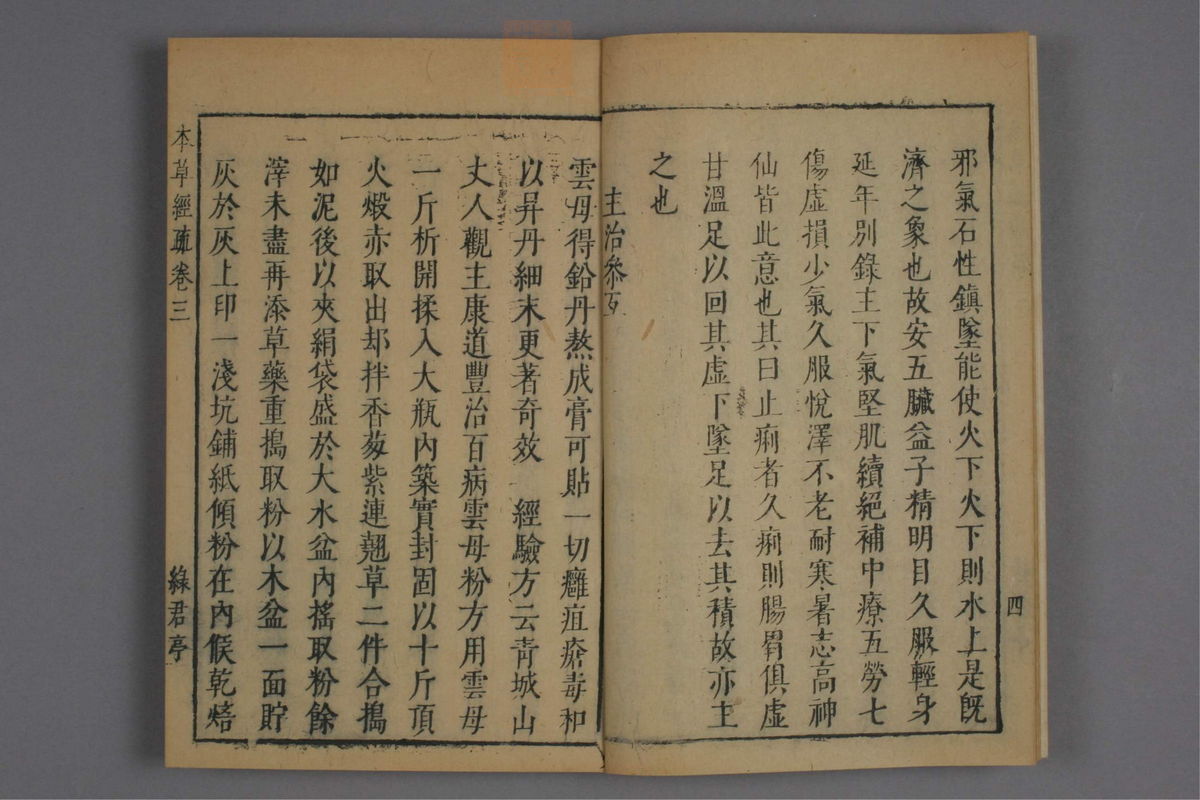 邪氣石性鎮墜能使火下火下則水上是旣
濟之象也故安五臟益子精明目久服輕身
延年別錄主下氣堅肌續絕補中療五勞七
傷虛損少氣久服悅澤不老耐寒暑志高神
仙皆此意也其曰止痢者久痢則腸胃俱虛
甘溫足以回其虛下墜足以去其積故亦主
之也
四
主治叅互
雲母得鉛丹熬成膏可貼一切癰疽瘡毒和
以昇丹細末更著奇效　經驗方云青城山
丈人觀主康道豐治百病雲母粉方用雲母
一斤析開揉入大瓶內築實封固以十斤頂
火煅赤取出却拌香葱紫連翹草二件合搗
如泥後以夾絹袋盛於大水盆內搖取粉餘
滓未盡再添草藥重搗取粉以木盆一面貯
灰於灰上印一淺坑鋪紙傾粉在內候乾焙
本草經疏卷三
綠君亭